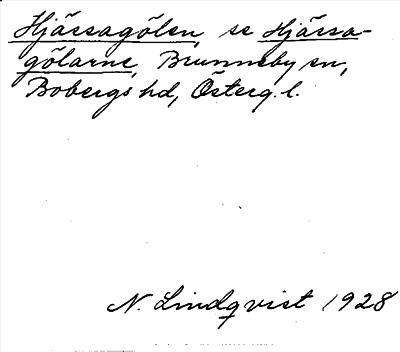 Hjässagölen, se Hjässa-
gölarne, Brunneby sn,
Bobergs hd, Österg. l.
N. Lindqvist 1928